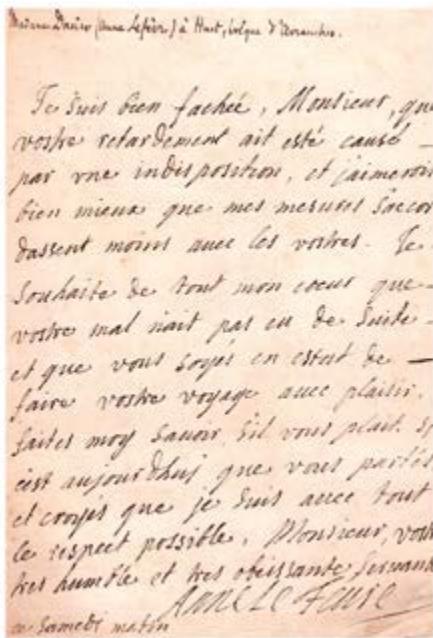 Madame Dacier (Anne Lefèvre) à Huet, évêque d'Avranches.
Je suis bien fachée, Monsieur, que
vostre retardement ait esté causé
par vne indisposition, et j'aimerois
bien mieux que mes mesures s'accor
dassent moins auec les vostres. Je
souhaite de tout mon coeur que
vostre mal n'ait pas eu de suite
et que vous soyés en estat de
faire vostre voyage auec plaisir.
faites moy sauoir s'il vous plait si
c'est aujourdhuj que vous partés
et croyés que je suis auec tout
le respect possible, Monsieur, vostr
tres humble et tres obeissante seruant
ANNE LE FEURE
ce samedi matin